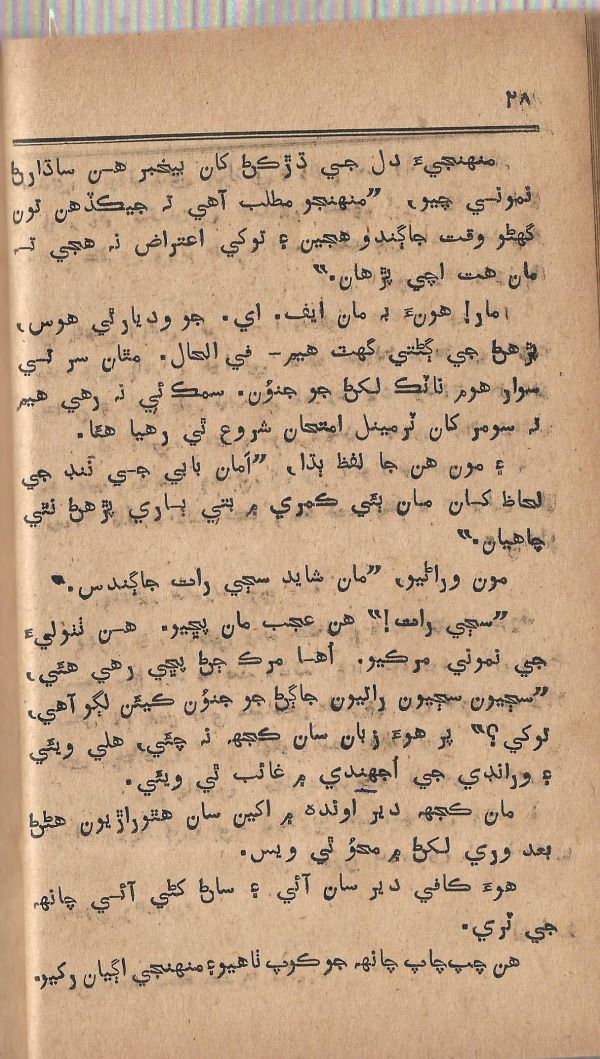 ٢٨
منهنجيءَ دل جي ڌڙڪڻ کان بيخبر هن ساڌارڻ
نموني چيو، ”منهنجو مطلب آهي ته جيڪڏهن تون
گهڻو وقت جاڳندو هجين ۽ توکي اعتراض نه هجي ته
مان هت اچي پڙهان.“
مار! هونءَ به مان ايف. اي. جو وديارٿي هوس،
پڙهڻ جي ڳڻتي گهٽ هيم– في الحال. مٿان سر تي
سوار هوم ناٽڪ لکڻ جو جنوُن. سمڪ ئي نه رهي هيم
ته سومر کان ٽرمينل امتحان شروع ٿي رهيا هئا.
۽ مون هن جا لفظ ٻڌا، ”اَمان بابي جي ننڊ جي
لحاظ کان مان ٻئي ڪمري ۾ بتي ٻاري پڙهڻ نٿي
چاهيان.“
مون وراڻيو، ”مان شايد سڄي رات جاڳندس.“
”سڄي رات!“ هن عجب مان پڇيو. هن ٺٺوليءَ
جي نموني مرڪيو. اُها مرڪ ڄڻ پڇي رهي هئي،
”سڄيون سڄيون راتيون جاڳڻ جو جنوُن ڪيئن لڳو آهي،
توکي؟“ پر هوءَ زبان سان ڪجهه نه چئي، هلي ويئي
۽ ورانڊي جي اُجهندي ۾ غائب ٿي ويئي.
مان ڪجهه دير اونده ۾ اکين سان هٿوراڙيون هڻڻ
بعد وري لکڻ ۾ محوُ ٿي ويس.
هوءَ ڪافي دير سان آئي ۽ ساڻ کڻي آئي چانهه
جي ٽري.
هن چپ چاپ چانهه جو ڪوپ ٺاهيو ۽ منهنجي اڳيان رکيو.